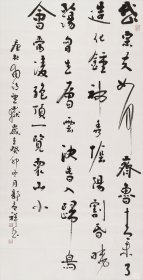 岱宗夫如何齊魯青未了
造化鍾神秀陰陽割昏曉
蕩胸生層雲決眥入歸鳥
會當凌絕頂一覽眾山小
唐杜甫詩望嶽癸卯